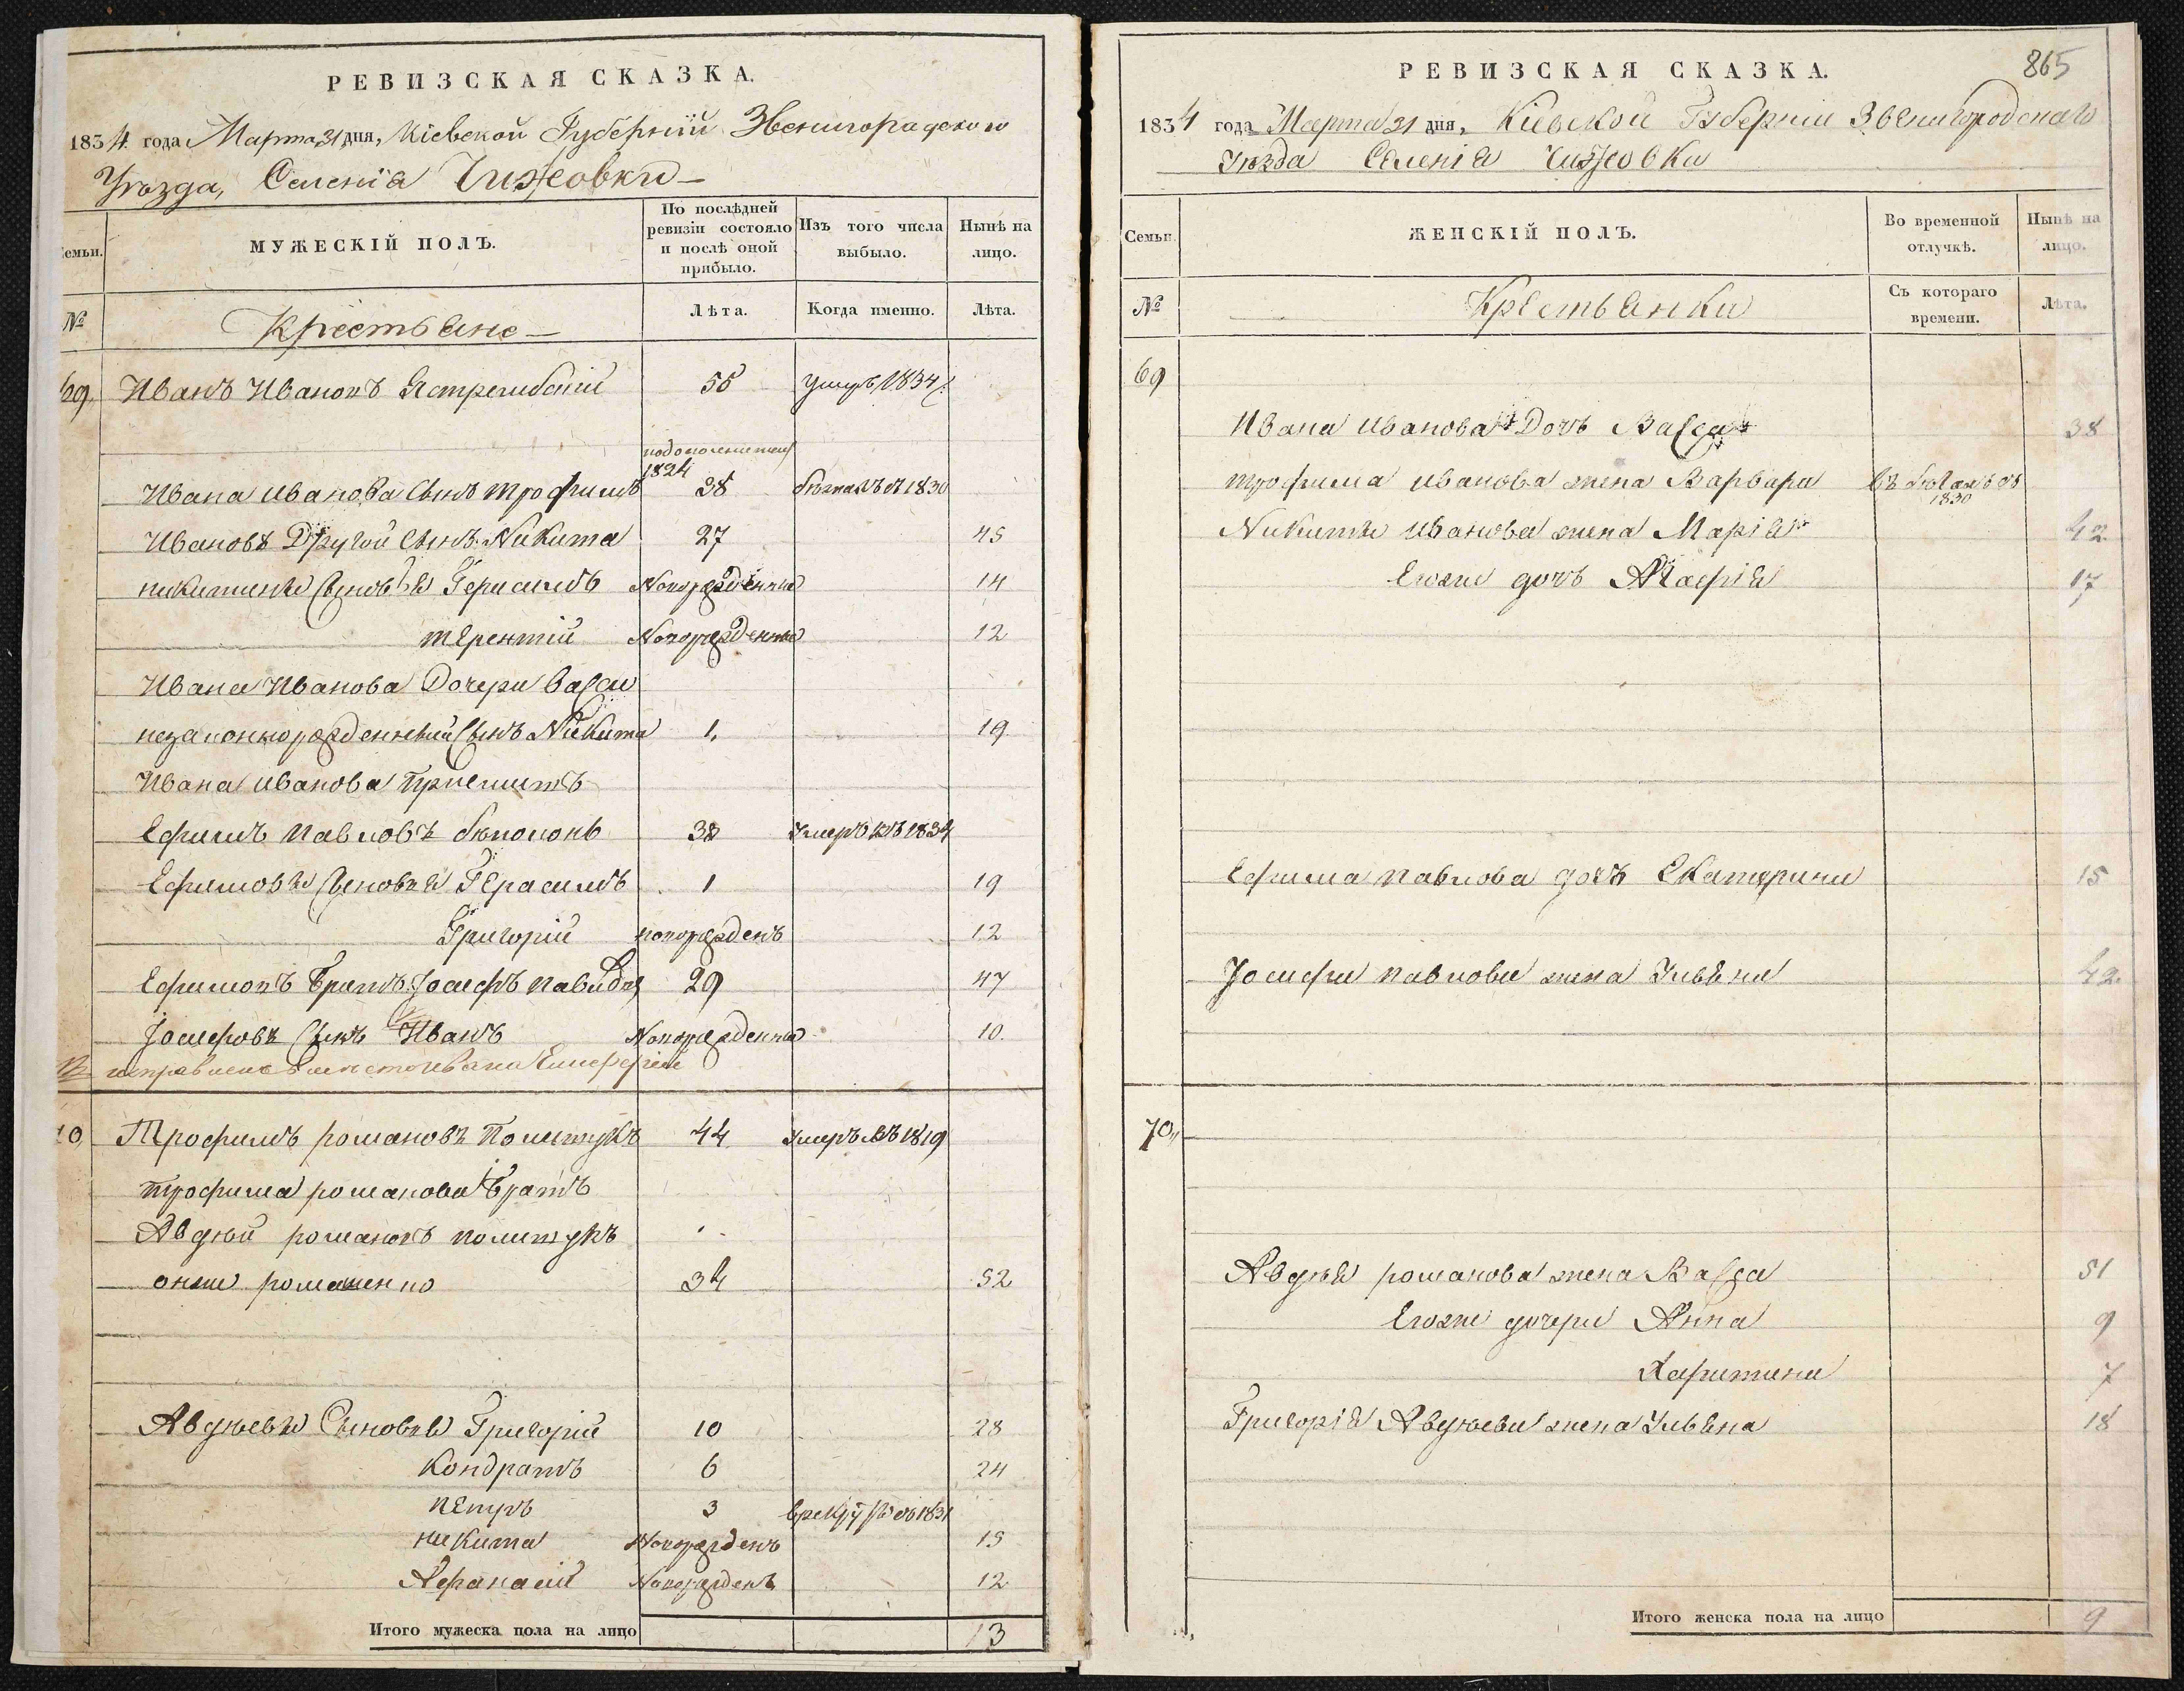 РЕВИЗСКАЯ СКАЗКА.
1834 года Марта 31 дня, Кіевской Губерніи Звенигорадского
Уѣзда, Селенія Чижовки
Семьи.
МУЖЕСКІЙ ПОЛЪ.
По послѣдней ревизіи состояло и послѣ оной прибыло.
Изъ того числа выбыло.
Нынѣ на лицо.
№
Крестьяне
Лѣта.
Когда именно.
Лѣта.
69 Иванъ Ивановъ 55 умеръ 1834
1824
Ивана Иванова Сынъ трофимъ 38 1830
Ивановъ Другой Сынъ Никита 27 45
Сыновья Герасимъ Новорожденны 14
терентій Новорожденны 12
Ивана Иванова Дочери Васси
незаконнорожденный Сынъ Никита 1. 19
Ивана Иванова Приемышъ
Ефимъ Павловъ 38 Умеръ въ 1834
Ефимовы Сыновья Герасимъ 1 19
Григорій новорожденъ 12
Ефимовъ Братъ Іосифъ 29 47
Іосифовъ Сынъ Иванъ Новорожденны 10.
70 Трофимъ романовъ Полищукъ 44 Умеръ въ 1819
трофима романова Братъ
Авдѣй романовъ полищукъ
онже романенко 34 52
Авдѣевы Сыновья Григорій 10 28
Кондратъ 6 24
пЕтръ 3 1831
никита Новорожденъ 15
Афанасій Новорожденъ 12
Итого мужеска пола на лицо 13
865
РЕВИЗСКАЯ СКАЗКА.
1834 года Марта 31 дня, Кіевской Губерніи Звенигородскаго
Уѣзда Селенія Чижовки
Семьи.
ЖЕНСКІЙ ПОЛЪ.
Во временной отлучкѣ.
Нынѣ на лицо.
№
Крестьянки
Съ котораго времени.
Лѣта.
69
Ивана Иванова Дочь Васса 38
трофима иванова жена Варвара въ бѣгахъ съ 1830
Никиты иванова жена Марія 42
Егоже дочь 17
Ефима павлова дочь Екатерина 15
Іосифа павлова жена Ульяна 42.
70
Авдѣя романова жена Васса 51
Егоже дочери Анна 9
Харитина 7
Григорія Авдѣева жена Ульяна 18
Итого женска пола на лицо 9